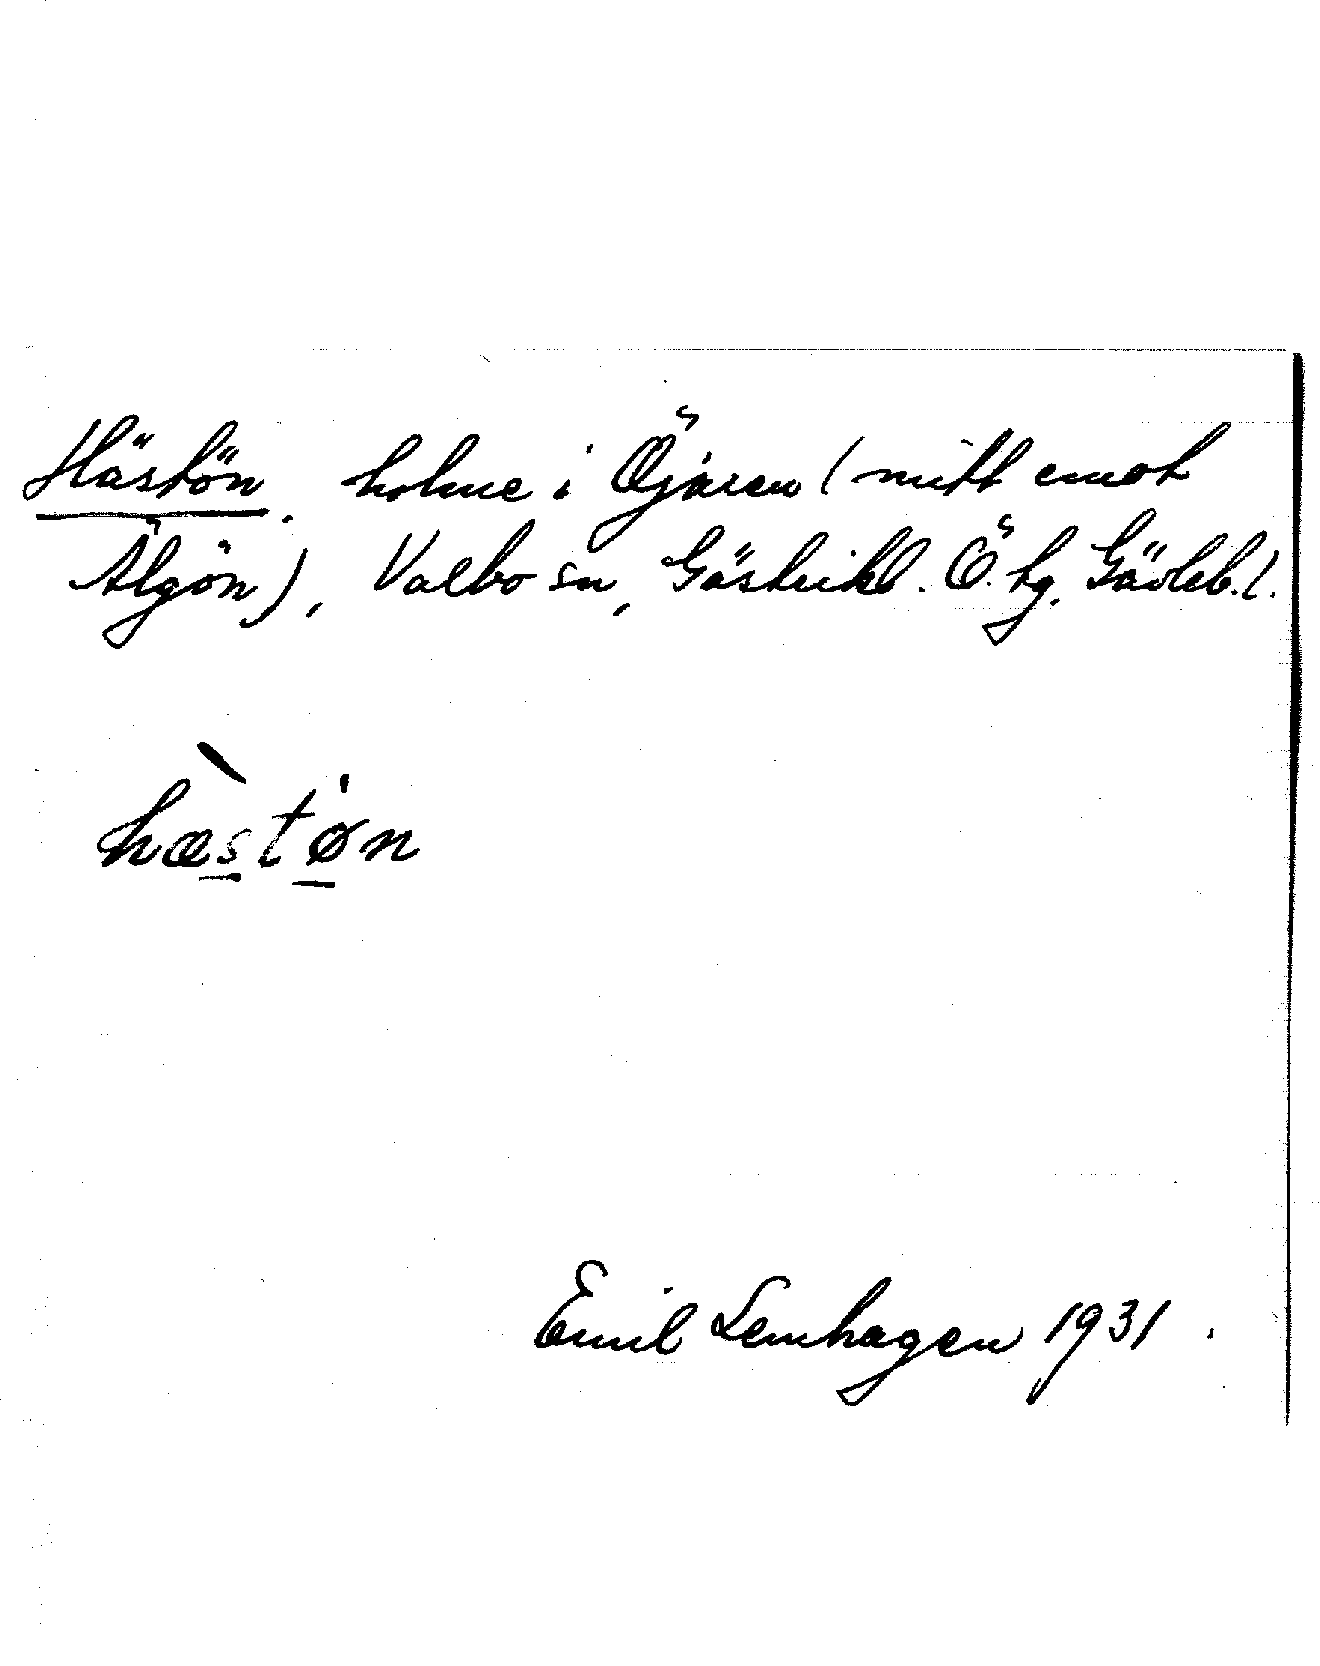 Hästön, holme i Öjaren (mitt emot
Älgön), Valbo sn, Gästrikl. Ö. tg. Gävleb. l.
hæstøn
Emil Lemhagen 1931.